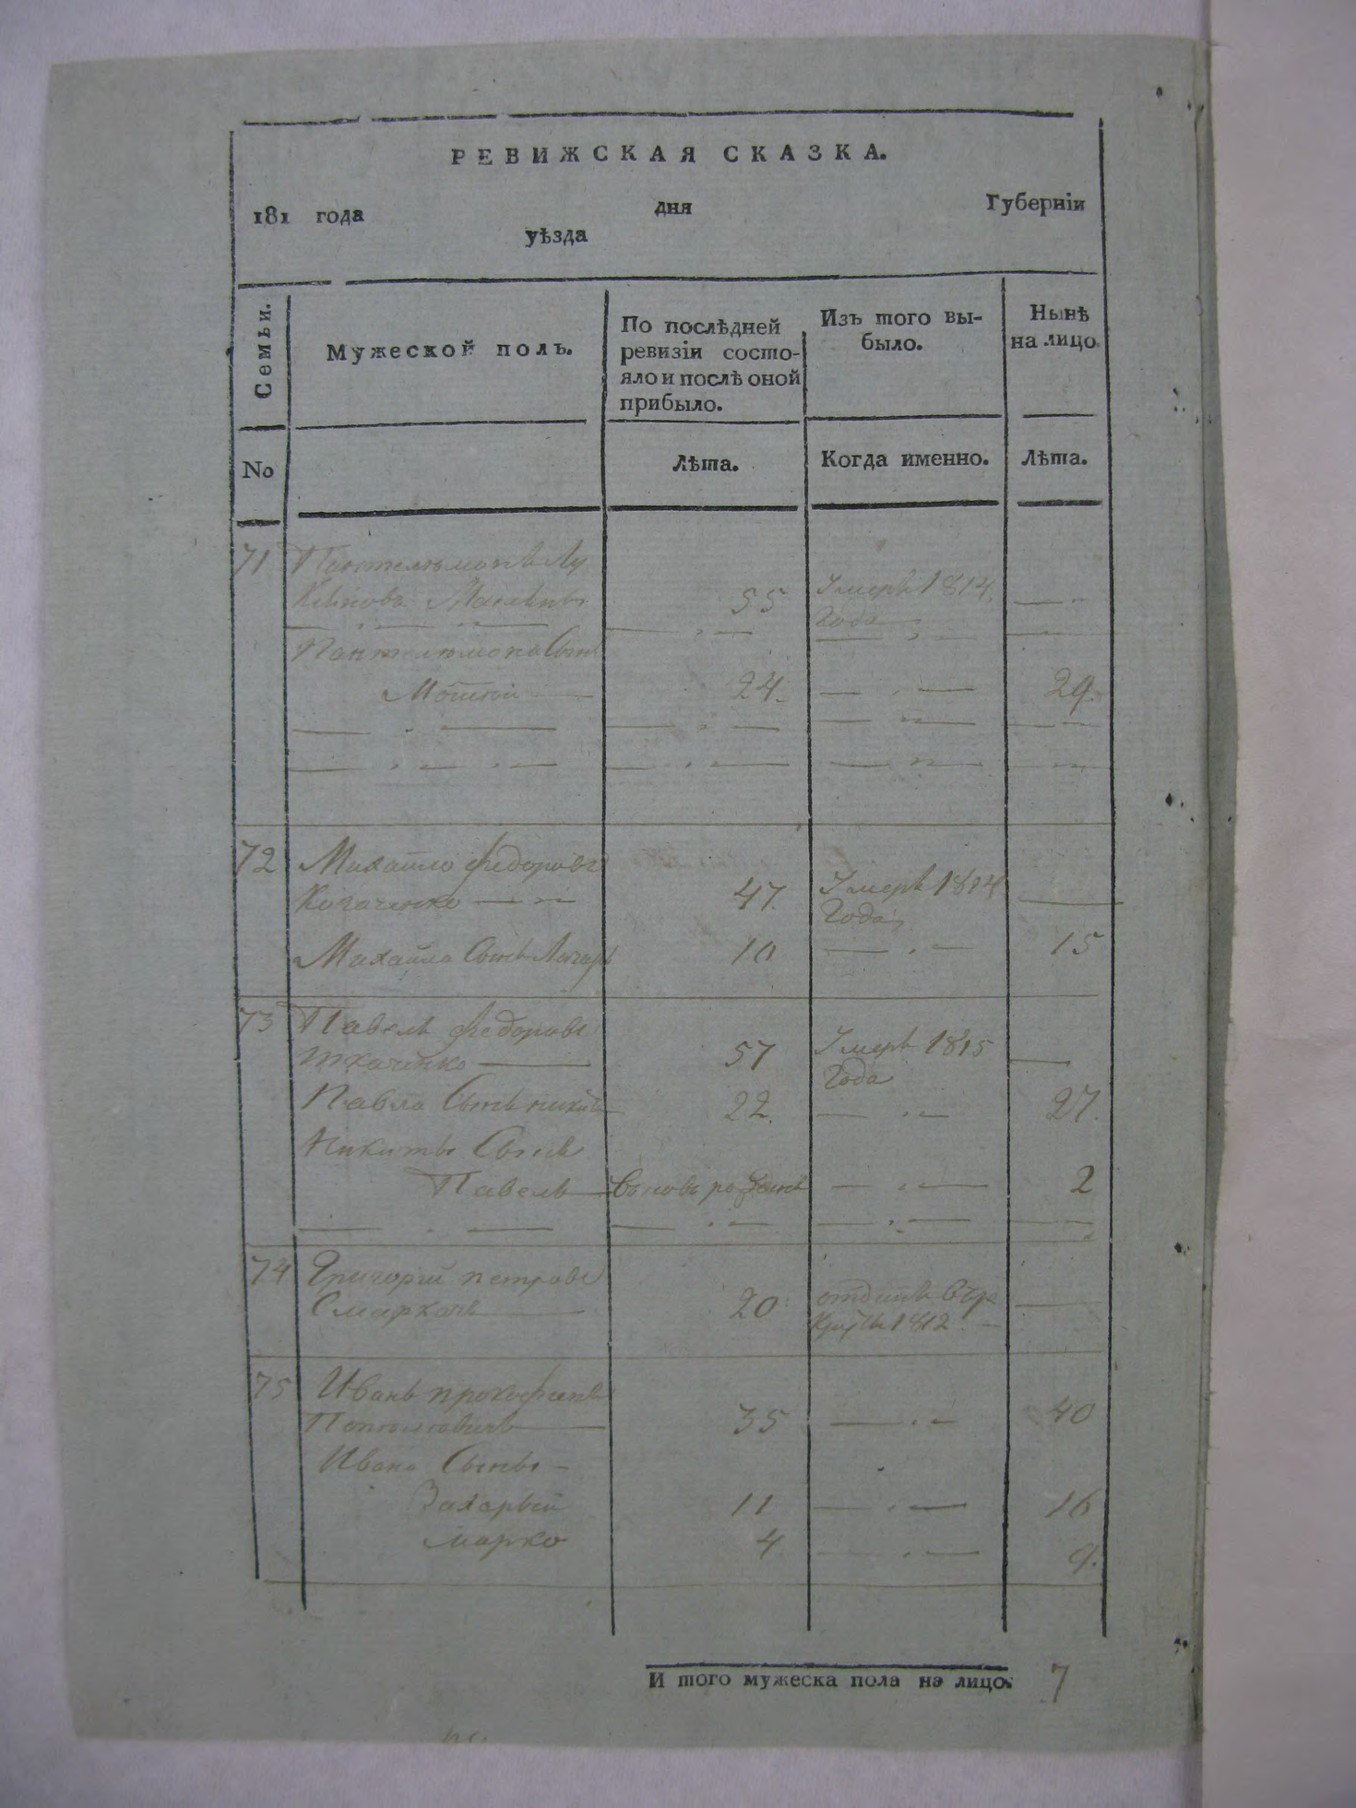 РЕВИЖСКАЯ СКАЗКА.
181 года дня Губерніи
уѣзда
Семьи.
Мужеской полъ.
По послѣдней
ревизіи состо-
яло и послѣ оной
прибыло.
Изъ того вы-
было.
Нынѣ
на лицо.
No
Лѣта.
Когда именно.
Лѣта.
71 Пантелѣмонъ Лу
55 Умеръ 1814.
Года
Пантелѣмона Сынъ
24. 29.
72 Михайло Федоровъ
47. Умеръ 1814
Года
Михайла Сынъ 10 15
73 Павелъ Федоровъ
Ткаченко 57 Умеръ 1815
Года
Павла Сынъ Никита 22. 27.
Никиты Сынъ
Павелъ вновь рожденъ 2
74 Григорій Петровъ
20 отданъ въ ре
круты 1812
75 Иванъ Прокофьевъ
35 40
Ивана Сыны
Захарьей 11 16
Марко 4 9.
И того мужеска пола на лицо. 7